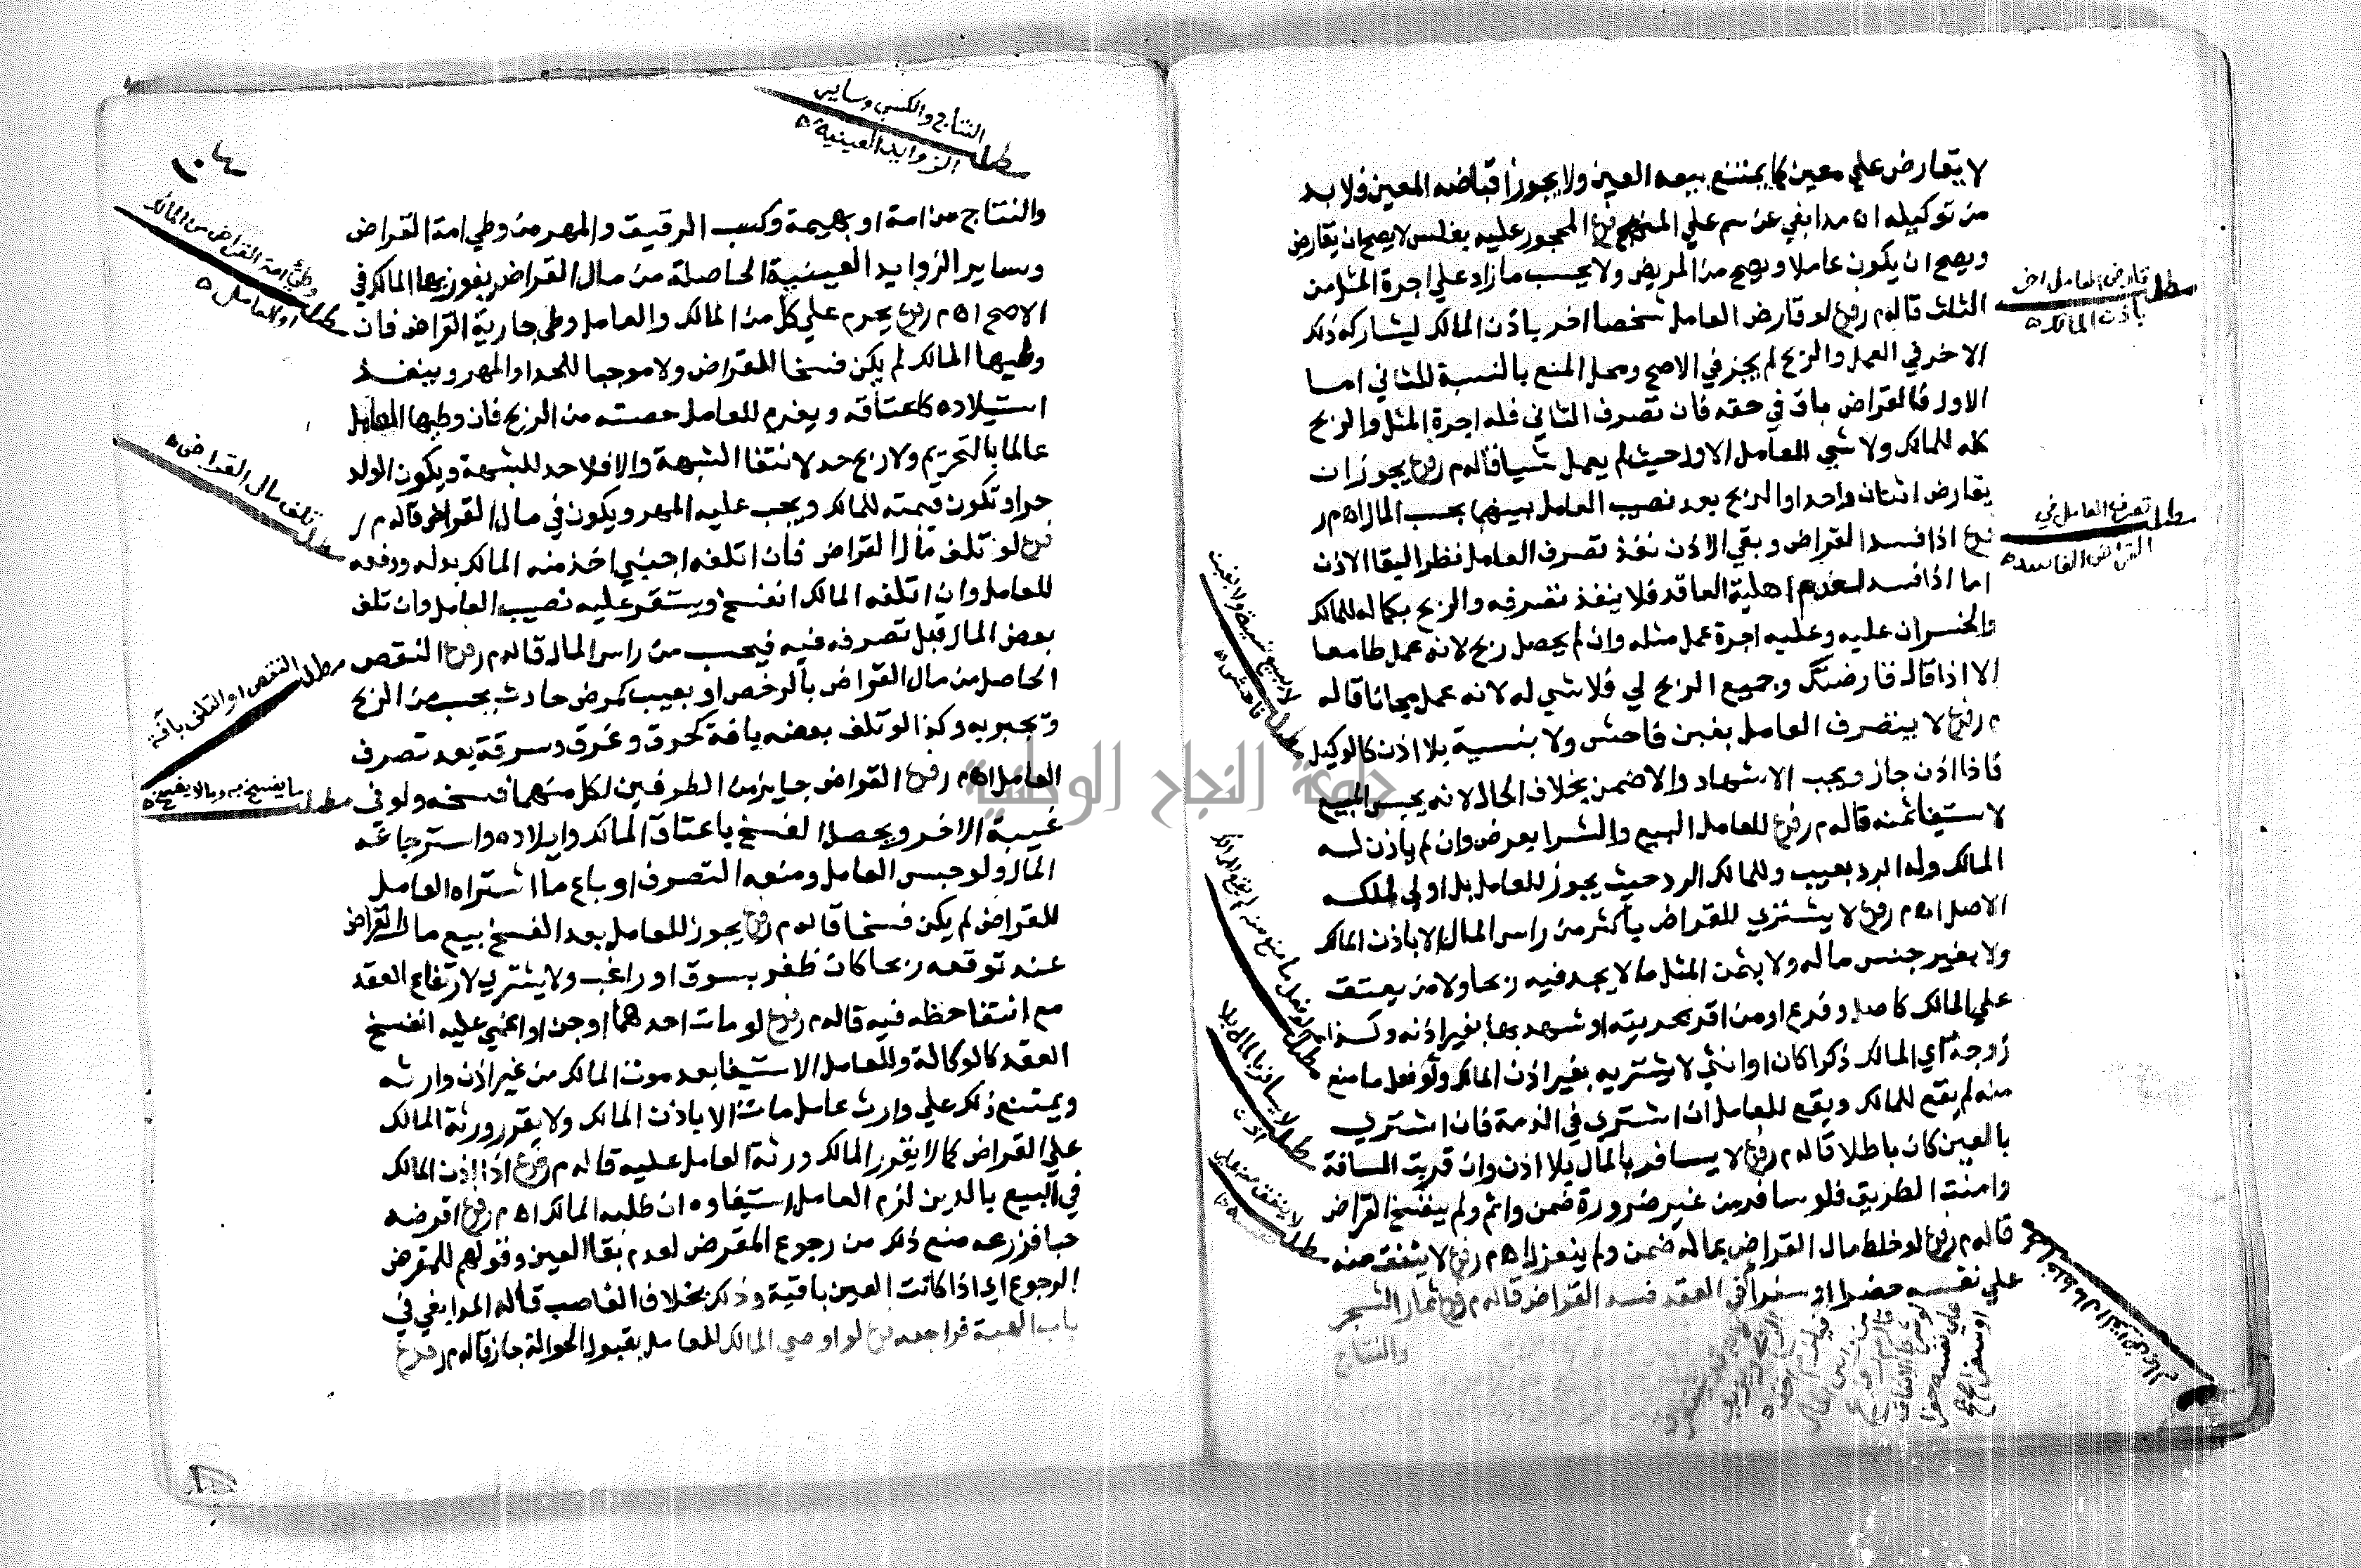 لا يقارض علي معين كما يمتنع بيعه العين ولا يجوز اقباضه المعين ولا بد
من توكيله اه مدابغي عن سم علي المنهج فرع المحجور عليه بفلس لا يصح ان يقارض
ويصح ان يكون عاملا ويصح من المريض ولا يحسب ما زاد علي اجرة المثل من
الثلث قاله م ر فرع لو قارض العامل شخصا اخر باذن المالك ليشاركه ذلك
الاخر في العمل والربح لم يجز في الاصح ومحل المنع بالنسبة للثاني اما
الاول فالقراض باق في حقه فان تصرف الثاني فله اجرة المثل والربح
كله للمالك ولا شي للعامل الاول حيث لم يعمل شيا قاله م ر فرع يجوز ان
يقارض اثنان واحدا والربح بعد نصيب العامل بينهما بحسب المال اه م ر
فرع اذا فسد القراض وبقي الاذن نفذ تصرف العامل نظرا لبقا الاذن
اما اذا فسد لعدم اهلية العاقد فلا ينفذ تصرفه والربح بكماله للمالك
والخسران عليه وعليه اجرة عمل مثله وان لم يحصل ربح لانه عمل طامعا
الا اذا قال قارضتك وجميع الربح لي فلا شي له لانه عمل مجانا قاله
م ر فرع لا يتصرف العامل بغبن فاحش ولا بنسية بلا اذن كالوكيل
فاذا اذن جاز ويجب الاشهاد والا ضمن بخلاف الحال لانه يحبس المبيع
لاستيفا ثمنه قاله م ر فرع للعامل البيع والشرا بعرض وان لم ياذن له
المالك وله الرد بعيب وللمالك الرد حيث يجوز للعامل بل اولي لملكه
الاصل اه م ر فرع لا يشتري للقراض باكثر من راس المال الا باذن المالك
ولا بغير جنس ماله ولا بثمن المثل ما لا يجد فيه ربحا ولا من يعتق
علي المالك كاصل وفرع او من اقر بحريته او شهد بها بغير اذنه وكذا
زوجة اي المالك ذكرا كان او انثي لا يشتريه بغير اذن المالك ولو فعل ما منع
منه لم يقع للمالك ويقع للعامل ان اشتري في الذمة فان اشتري
بالعين كان باطلا قاله م ر فرع لا يسافر بالمال بلا اذن وان قربت المسافة
وامنت الطريق فلو سافر من غير ضرورة ضمن واثم ولم ينفسخ القراض
قاله م ر فرع لو خلط مال القراض بماله ضمن ولم ينعزل اه م ر فرع لا ينفق منه
علي نفسه حضرا او سفرا في العقد فسد القراض قاله م ر فرع ثمار الشجر
والنتاج
مطلب قارض العامل اخر
باذن المالك
مطلب تصرف العامل في
القراض الفاسد
مطلب لا يبيع نسية ولا بغبن
فاحش
مطلب لو فعل ما منع منه لم يقع للمالك
مطلب لا يسافر بالمال بلا
اذن
مطلب لا ينفق منه علي
مطلب النتاج والكسب وساير
الزوايد العينية
١٠٤
والنتاج من امة او بهيمة وكسب الرقيق والمهر من وطي امة القراض
وساير الزوايد العينية الحاصلة من مال القراض يفوز بها المالك في
الاصح اه م ر فرع يحرم علي كل من المالك والعامل وطي جارية القراض فان
وطيها المالك لم يكن فسخا للقراض ولا موجبا للحد او المهر وينفذ
استيلاده كاعتاقه ويغرم للعامل حصته من الربح فان وطيها العامل
عالما بالتحريم ولا ربح حد لانتفا الشبهة والا فلا حد للشبهة ويكون الولد
حرا وتكون قيمته للمالك ويجب عليه المهر ويكون في مال القراض قاله م ر
فرع لو تلف مال القراض فان اتلفه اجنبي اخذ منه المالك بدله ودفعه
للعامل وان اتلفه المالك انفسخ ويستقر عليه نصيب العامل وان تلف
بعض المال قبل تصرفه فيه فيحسب من راس المال قاله م ر فرع النقص
الحاصل من مال القراض بالرخص او بعيب كمرض حادث يحسب من الربح
ويجبر به وكذا لو تلف بعضه بافة كحرق وغرق وسرقة بعد تصرف
العامل اه م ر فرع القراض جايز من الطرفين لكل منهما فسخه ولو في
غيبة الاخر ويحصل الفسخ باعتاق المالك وايلاده واسترجاعه
المال ولو حبس العامل ومنعه التصرف او باع ما اشتراه العامل
للقراض لم يكن فسخا قاله م ر فرع يجوز للعامل بعد الفسخ بيع مال القراض
عند توقعه ربحا كان ظفر بسوق او راغب ولا يشتري لارتفاع العقد
مع انتفا حظه فيه قاله م ر فرع لو مات احدهما او جن او اغمي عليه انفسخ
العقد كالوكالة وللعامل الاستيفا بعد موت المالك من غير اذن وارثه
ويمتنع ذلك علي وارث عامل مات الا باذن المالك ولا يقرر ورثة المالك
علي القراض كما لا يقرر المالك ورثة العامل عليه قاله م ر فرع اذا اذن المالك
في البيع بالدين لزم العامل استيفاوه ان طلبه المالك اه م ر فرع اقرضه
حبا فزرعه منع ذلك من رجوع المقرض لعدم بقا العين وقولهم للمقرض
الرجوع اي اذا كانت العين باقية وذلك بخلاف الغاصب قاله المدابغي في
باب الهبة فراجعه فرع لو اوصي المالك للعامل بقبول الحوالة جاز قاله م ر فرع
مطلب وطئ امة القراض من المالك
او العامل
مطلب تلف مال القراض
مطلب النقص او التلف بآفة
مطلب ما يفسخ به وما لا يفسخ به
جامعة النجاح الوطنية